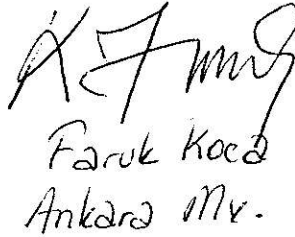 Faruk Koca
Ankara Mv.